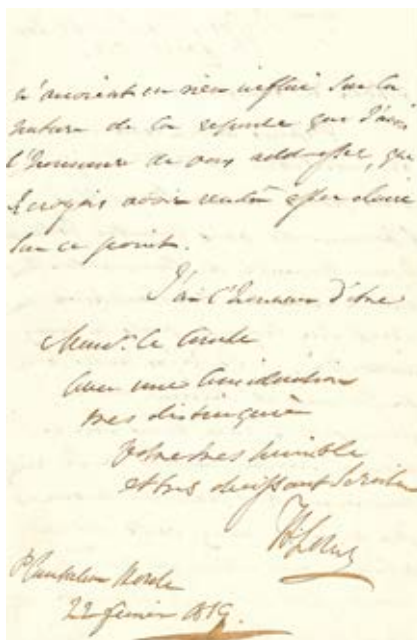 n'avoient en rien influé sur la
nature de la reponse que j'avois
l'honneur de vous addresser, que
je croyois avoir rendu assez claire
sur ce point.
J'ai l'honneur d'être
Monsr. le Comte
avec une Consideration
tres distinguée
votre tres humble
et tres obeissant Serviteur
Plantation
22 fevrier 1819.